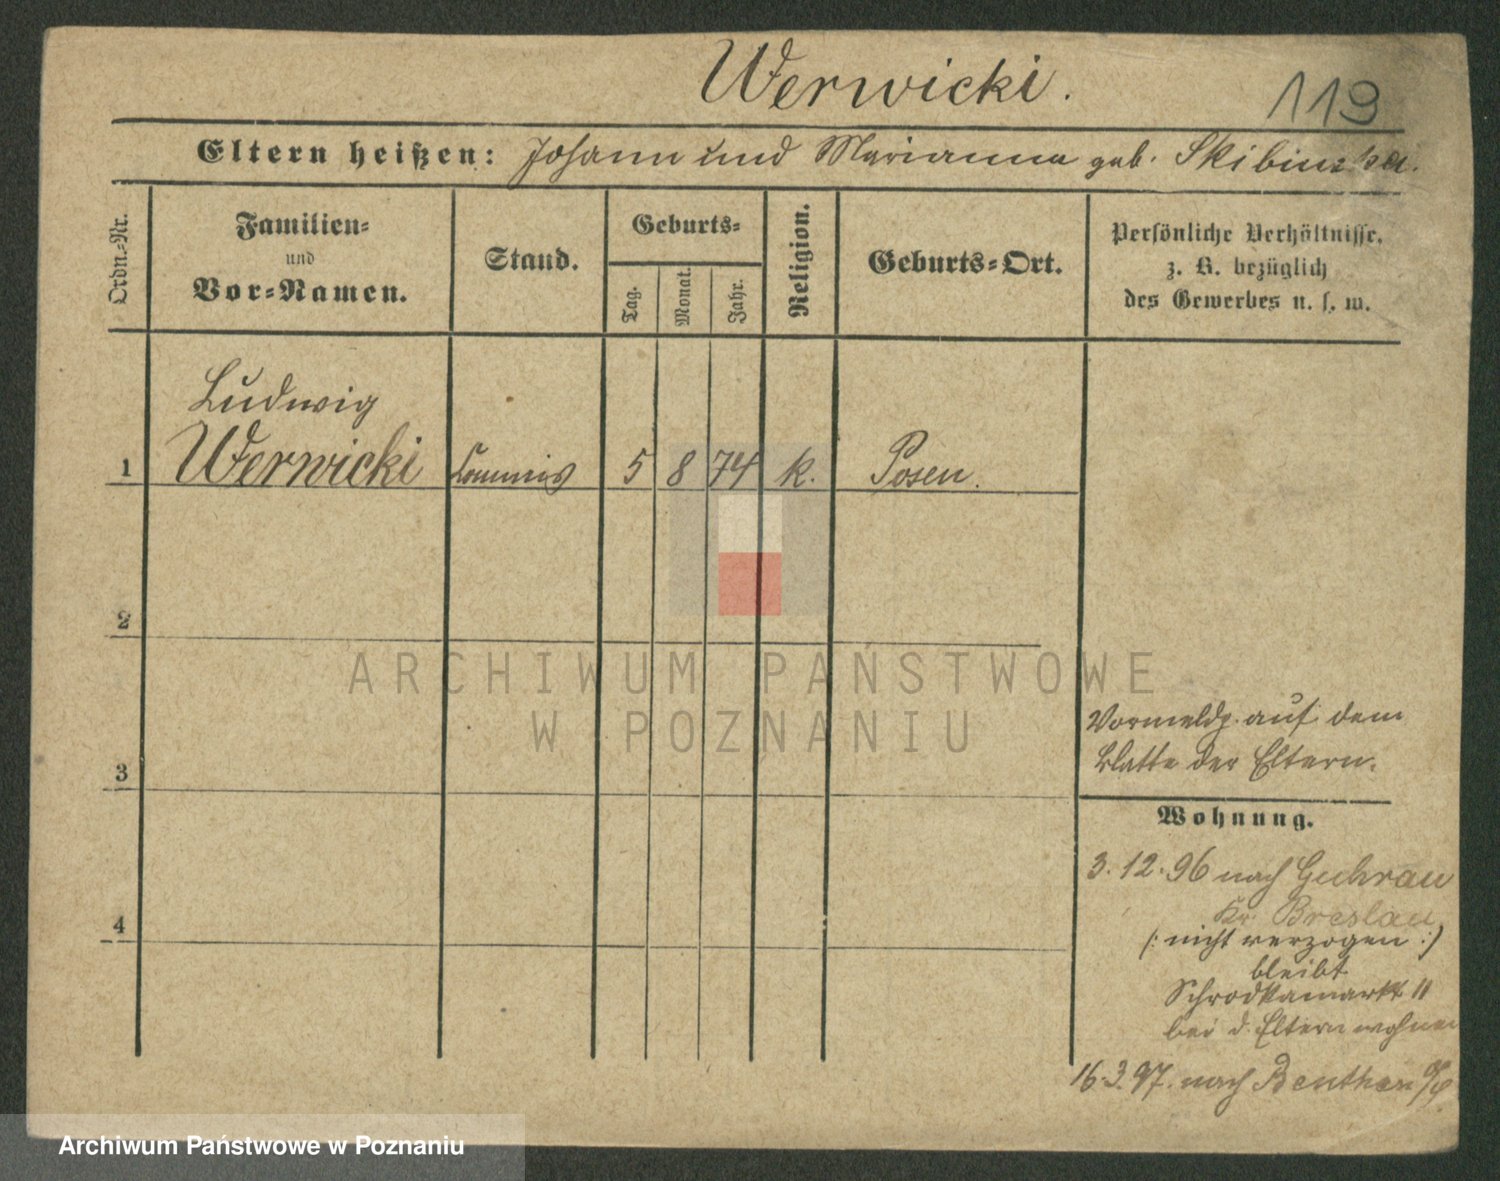 Werwicki.
119
Eltern heißen: Johann und Marianna geb. Skibinska.
Ordn.=Nr.
Familien=
und
Vor=Namen.
Stand.
Geburts=
Tag.
Monat.
Jahr.
Religion.
Geburts=Ort.
Persönliche Verhältnisse.
z. B. bezüglich
des Gewerbes u. s. w.
Ludwig
1 Werwicki Commis 5 8 74 k. Posen.
2
ARCHIWUM PAŃSTWOWE
W POZNANIU
Vormeldg. auf dem
3 Blatte der Eltern.
Wohnung.
3.12.96 nach Guhrau
Kr. Breslau
4 (: nicht verzogen :)
bleibt
Schrodkamarkt 11
bei d. Eltern wohnen
16.3.97. nach Beuthen O/S
Archiwum Państwowe w Poznaniu